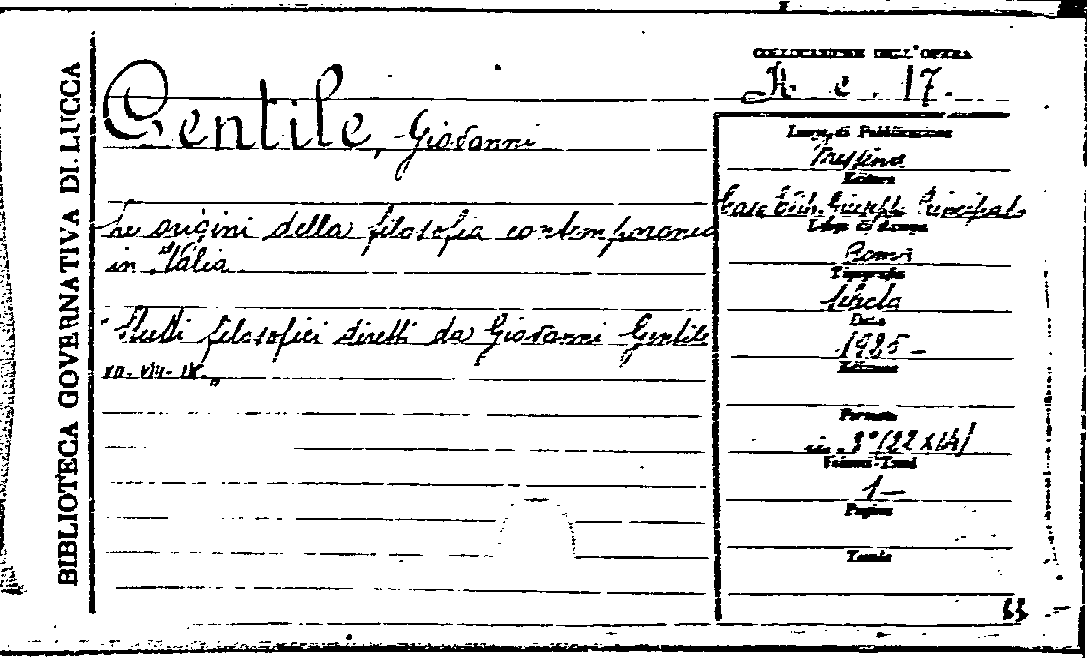 BIBLIOTECA GOVERNATIVA DI LUCCA
COLLOCAZIONE DELL'OPERA
A. e. 17.
Gentile, Giovanni
Le origini della filosofia contemporanea
in Italia
"Studi filosofici diretti da Giovanni Gentile
VII-VIII-IX."
Luogo di Pubblicazione
Messina
Editore
Casa Edit. Giuseppe Principato
Luogo di Stampa
Roma
Tipografia
Data
1925 -
Edizione
Formato
in. 8° (22 x 14)
Volumi-Tomi
1 -
Pagine
Tavole